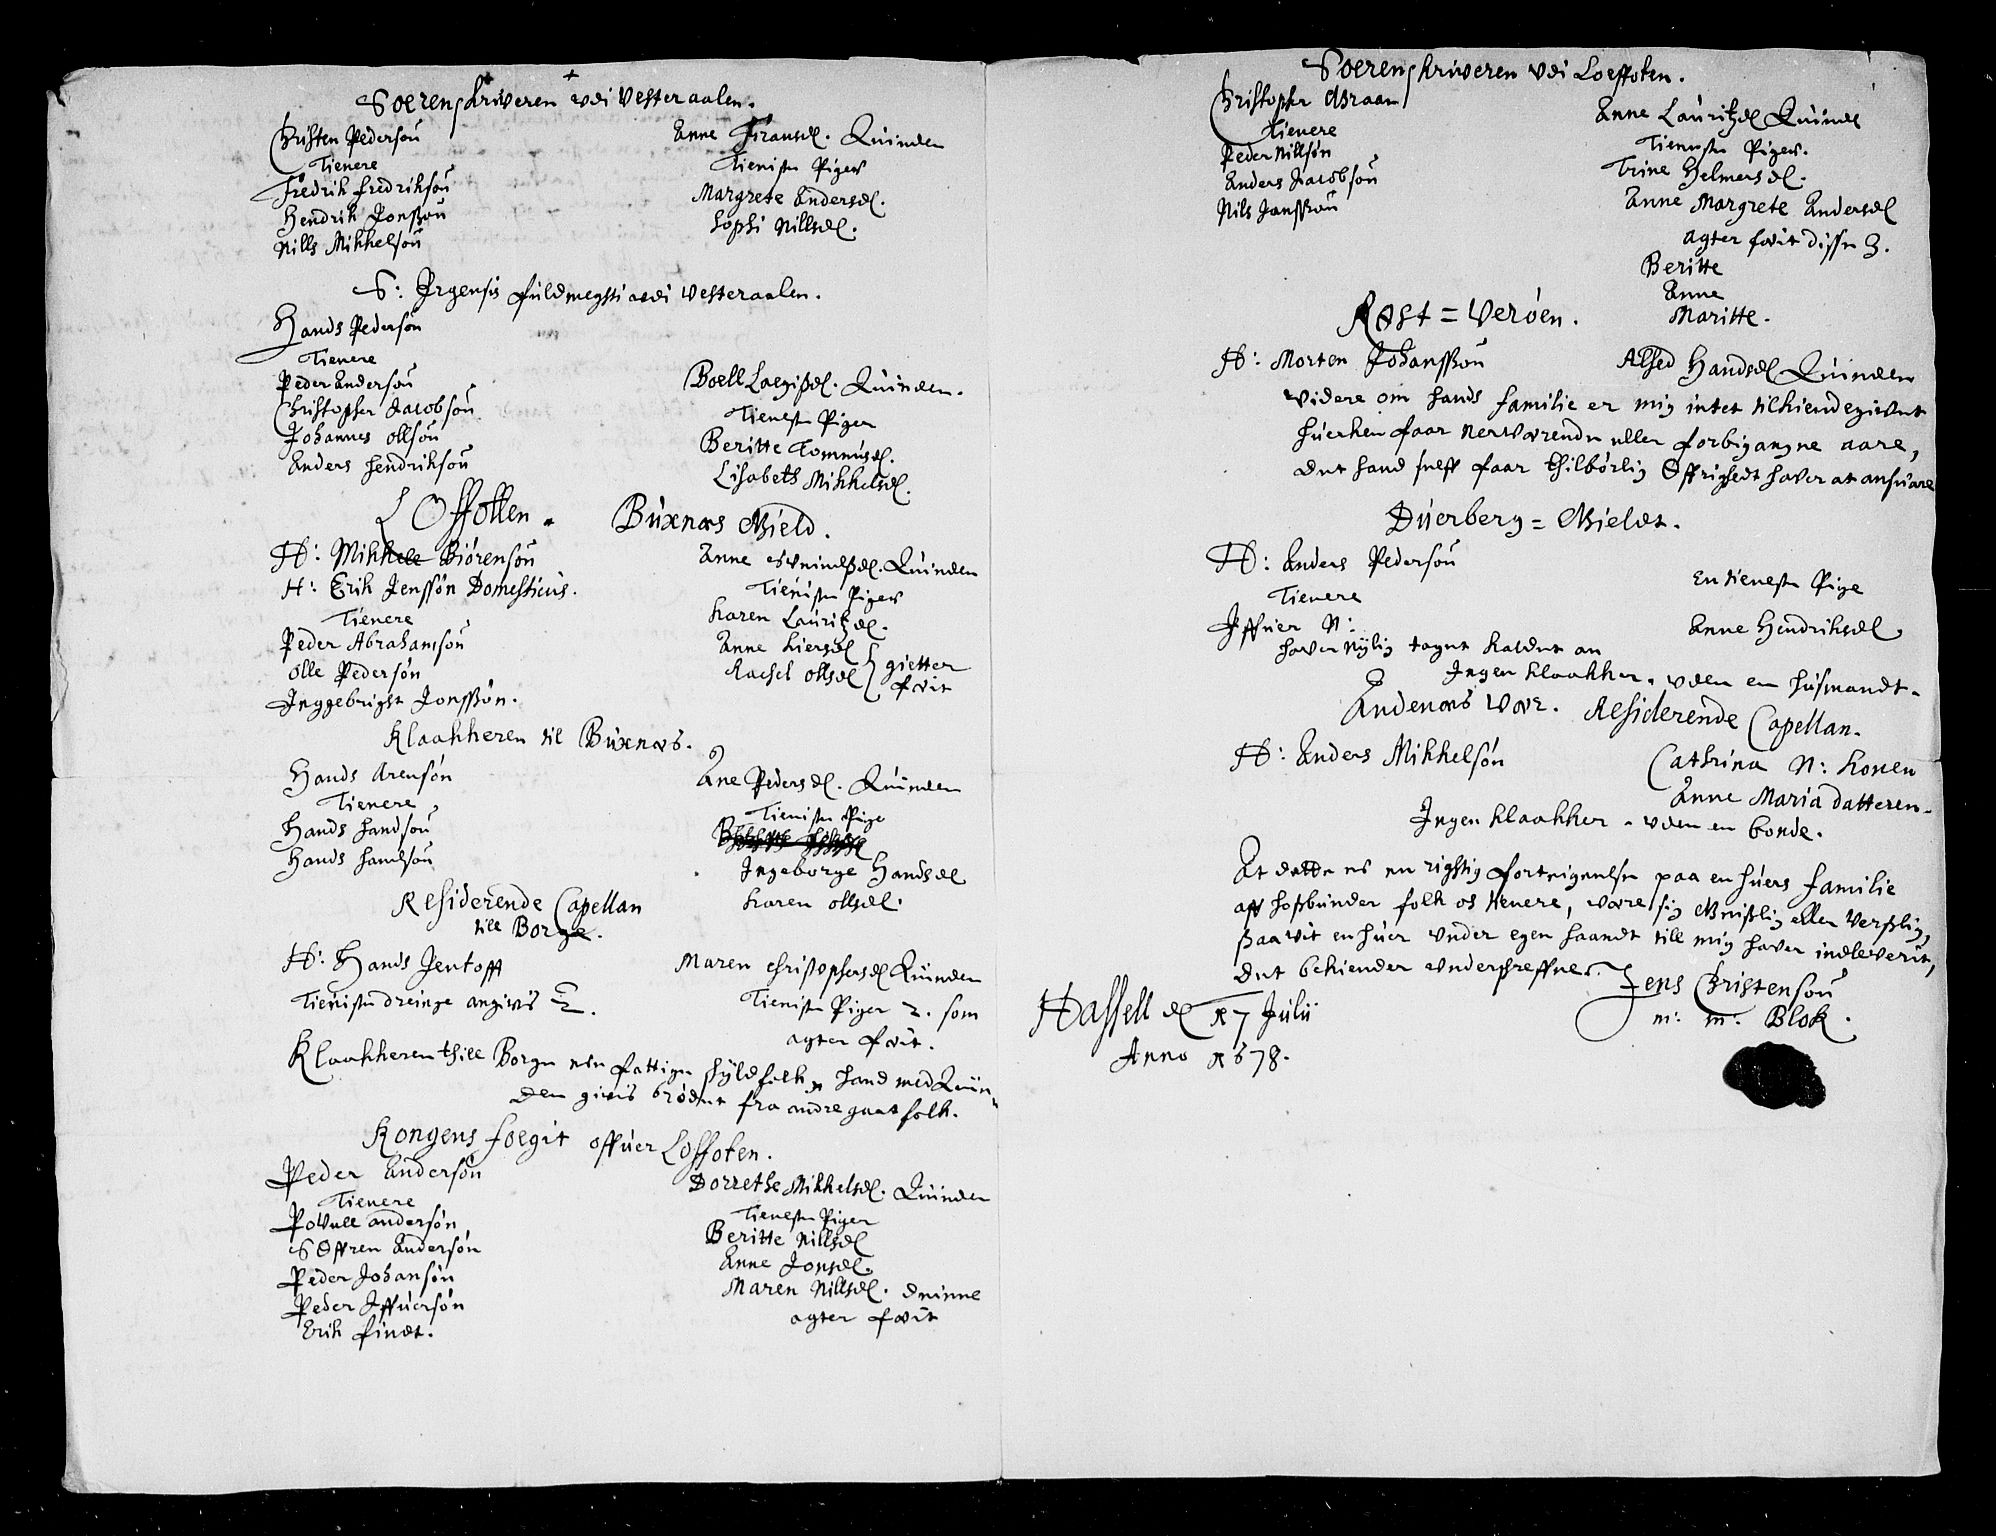 Soerenskriveren vdi Vesteraalen.
Christen Pedersøn
Tienere
Fredrik Fredriksøn
Hendrik Jonsßøn
Nills Mikkelsøn
Anne Fransdl. Quinden
Tieniste Piger
Margrete Andersdl.
Sophi Nillsdl.
S: Jrgensis fuldmegtti vdi Vesteraalen.
Hands Pedersøn
Tienere
Peder Andersøn
Christopher Jacobsøn
Johannes Ollsøn
Anders Hendriksøn
Boell Quinden.
Tieneste Piger
Beritte Tommisdl.
Lisabeth Mikkelsdl.
Loffotten. Buxnæs Gield.
H: Mikkell Biørensøn
H: Erik Jenssøn Domesticus.
Tienere
Peder Abrahamsøn
Olle Pedersøn
Inggebright Jonssøn.
Anne Quinden
Tieniste Piger
Karen Lauritzdl.
Anne Kiersdl
Rachel Ollsdl } gietter
fæit
Klaakkeren til Buxnæs.
Hands Arensøn
Tienere
Hands Handsøn
Hands Handsøn
Ane Pedersdl. Quinden
Tieniste Pige
Ingeborge Handsdl
Karen Ollsdl.
Residerende Capellan
till Borge.
H: Hands Jentofft
Tieniste dreinge angivis 2.
Maren Christophersdl Quinden
Tieniste Piger 2. som
agter fæit.
Klaakkeren thill Borge een fattige skyldfolk, hand med Quin-
den givis brødet fra andre gaat folk.
Kongens foegit offuer Loffoten.
Peder Andersøn
Tienere
Povell Andersøn
Søffren Andersøn
Peder Johansøn
Peder Iffuersøn
Erik Findt.
Dorrethe Mikkelsdl. Quinden
Tieneste Piger
Beritte Nillsdl
Anne Jonsdl.
Maren Nillsdl. denne
agter fæit
Soerenskriveren vdi Loeffoten.
Christopher Abraam
Tienere
Peder Nillsøn
Anders Jacobsøn
Nils Jansßøn
Anne Lauritzdl Quinde
Tieneste Piger.
Trine Helmersdl.
Anne Margrete Andersdl
agter fæit disse 3.
Beritte
Anne
Maritte.
Røst = Verøen.
H: Morten Johansßøn
Alhed Handsdl Quinden
Videre om hands familie er mig intet tilkiendegivet
huerken faar nerværende eller forbigangne aare,
det hand self faar thilbørlig Øffrighedt haver at ansuare
Duerberg = Gieldt.
H: Anders Pedersøn
Tienere
Iffuer N:
haver nylig taget kaldet an
En tieneste Pige
Anne Hendriksdl.
Ingen klaakker. uden en husmandt.
Andenæs Vær. Residerende Capellan.
H: Anders Mikkelsøn
Cathrina N: konen
Anne Maria datteren.
Ingen klaakker. uden en bonde.
At dette er en rigtig forteignelse paa en huers familie
aff hoßbunder folk os tienere, være sig Geistlig eller Verßlig,
ßaavit en huer under egen haandt till mig haver indleverit,
det bekiender underskreffne.
Jens Christensøn
m: m: Blok.
Hassell dl 17 Julii
Anno 1678.